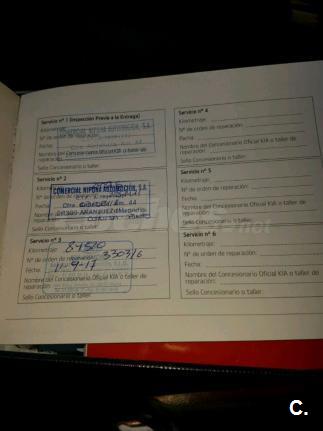 Servicio nº 1 (Inspección Previa a la Entrega)
Kilometraje:
Nº de orden de reparación:
Fecha:
Nombre del Concesionario Oficial KIA o taller de
reparación:
Sello Concesionario o taller:
Servicio nº 2
Kilometraje:
COMERCIAL NIPONA AUTOMOCION, S.A.
ARANJUEZ
Sello Concesionario o taller:
Servicio nº 3
Kilometraje: 84520
Nº de orden de reparación: 330316
Fecha: 11-9-17
Nombre del Concesionario Oficial KIA o taller de
reparación:
Sello Concesionario o taller:
Servicio nº 4
Kilometraje:
Nº de orden de reparación:
Fecha:
Nombre del Concesionario Oficial KIA o taller de
reparación:
Sello Concesionario o taller:
Servicio nº 5
Kilometraje:
Nº de orden de reparación:
Fecha:
Nombre del Concesionario Oficial KIA o taller de
reparación:
Sello Concesionario o taller:
Servicio nº 6
Kilometraje:
Nº de orden de reparación:
Fecha:
Nombre del Concesionario Oficial KIA o taller de
reparación:
Sello Concesionario o taller:
C.